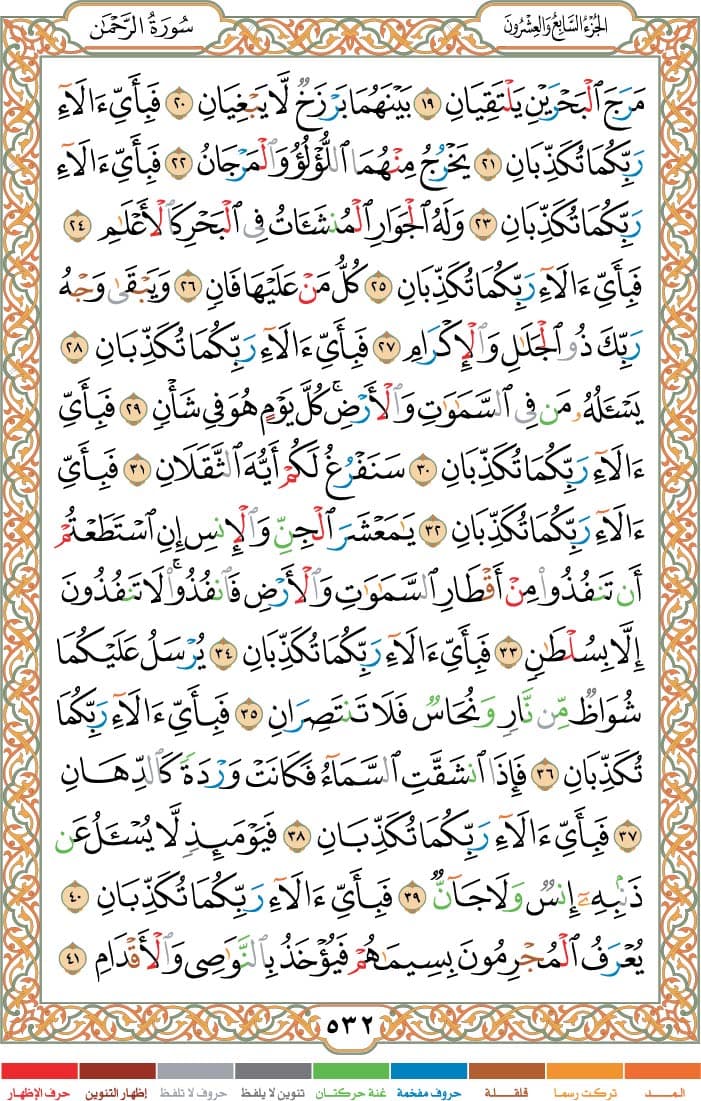 الجزء السابع والعشرون
سورة الرحمن
مَرَجَ ٱلْبَحْرَيْنِ يَلْتَقِيَانِ ١٩ بَيْنَهُمَا بَرْزَخٌ لَّا يَبْغِيَانِ ٢٠ فَبِأَيِّ ءَالَآءِ
رَبِّكُمَا تُكَذِّبَانِ ٢١ يَخْرُجُ مِنْهُمَا ٱللُّؤْلُؤُ وَٱلْمَرْجَانُ ٢٢ فَبِأَيِّ ءَالَآءِ
رَبِّكُمَا تُكَذِّبَانِ ٢٣ وَلَهُ ٱلْجَوَارِ ٱلْمُنشَـَٔاتُ فِى ٱلْبَحْرِ كَٱلْأَعْلَـٰمِ ٢٤
فَبِأَيِّ ءَالَآءِ رَبِّكُمَا تُكَذِّبَانِ ٢٥ كُلُّ مَنْ عَلَيْهَا فَانٍ ٢٦ وَيَبْقَىٰ وَجْهُ
رَبِّكَ ذُو ٱلْجَلَـٰلِ وَٱلْإِكْرَامِ ٢٧ فَبِأَيِّ ءَالَآءِ رَبِّكُمَا تُكَذِّبَانِ ٢٨
يَسْـَٔلُهُۥ مَن فِى ٱلسَّمَـٰوَٰتِ وَٱلْأَرْضِ ۚ كُلَّ يَوْمٍ هُوَ فِى شَأْنٍ ٢٩ فَبِأَيِّ
ءَالَآءِ رَبِّكُمَا تُكَذِّبَانِ ٣٠ سَنَفْرُغُ لَكُمْ أَيُّهَ ٱلثَّقَلَانِ ٣١ فَبِأَيِّ
ءَالَآءِ رَبِّكُمَا تُكَذِّبَانِ ٣٢ يَـٰمَعْشَرَ ٱلْجِنِّ وَٱلْإِنسِ إِنِ ٱسْتَطَعْتُمْ
أَن تَنفُذُوا۟ مِنْ أَقْطَارِ ٱلسَّمَـٰوَٰتِ وَٱلْأَرْضِ فَٱنفُذُوا۟ ۚ لَا تَنفُذُونَ
إِلَّا بِسُلْطَـٰنٍ ٣٣ فَبِأَيِّ ءَالَآءِ رَبِّكُمَا تُكَذِّبَانِ ٣٤ يُرْسَلُ عَلَيْكُمَا
شُوَاظٌ مِّن نَّارٍ وَنُحَاسٌ فَلَا تَنتَصِرَانِ ٣٥ فَبِأَيِّ ءَالَآءِ رَبِّكُمَا
تُكَذِّبَانِ ٣٦ فَإِذَا ٱنشَقَّتِ ٱلسَّمَآءُ فَكَانَتْ وَرْدَةً كَٱلدِّهَانِ
٣٧ فَبِأَيِّ ءَالَآءِ رَبِّكُمَا تُكَذِّبَانِ ٣٨ فَيَوْمَئِذٍ لَّا يُسْـَٔلُ عَن
ذَنۢبِهِۦٓ إِنسٌ وَلَا جَآنٌّ ٣٩ فَبِأَيِّ ءَالَآءِ رَبِّكُمَا تُكَذِّبَانِ ٤٠
يُعْرَفُ ٱلْمُجْرِمُونَ بِسِيمَـٰهُمْ فَيُؤْخَذُ بِٱلنَّوَٰصِى وَٱلْأَقْدَامِ ٤١
٥٣٢
المــد تركت رسما قلقلة حروف مفخمة غنة حركتان تنوين لا يلفظ حروف لا تلفظ إظهار التنوين حرف الإظهار